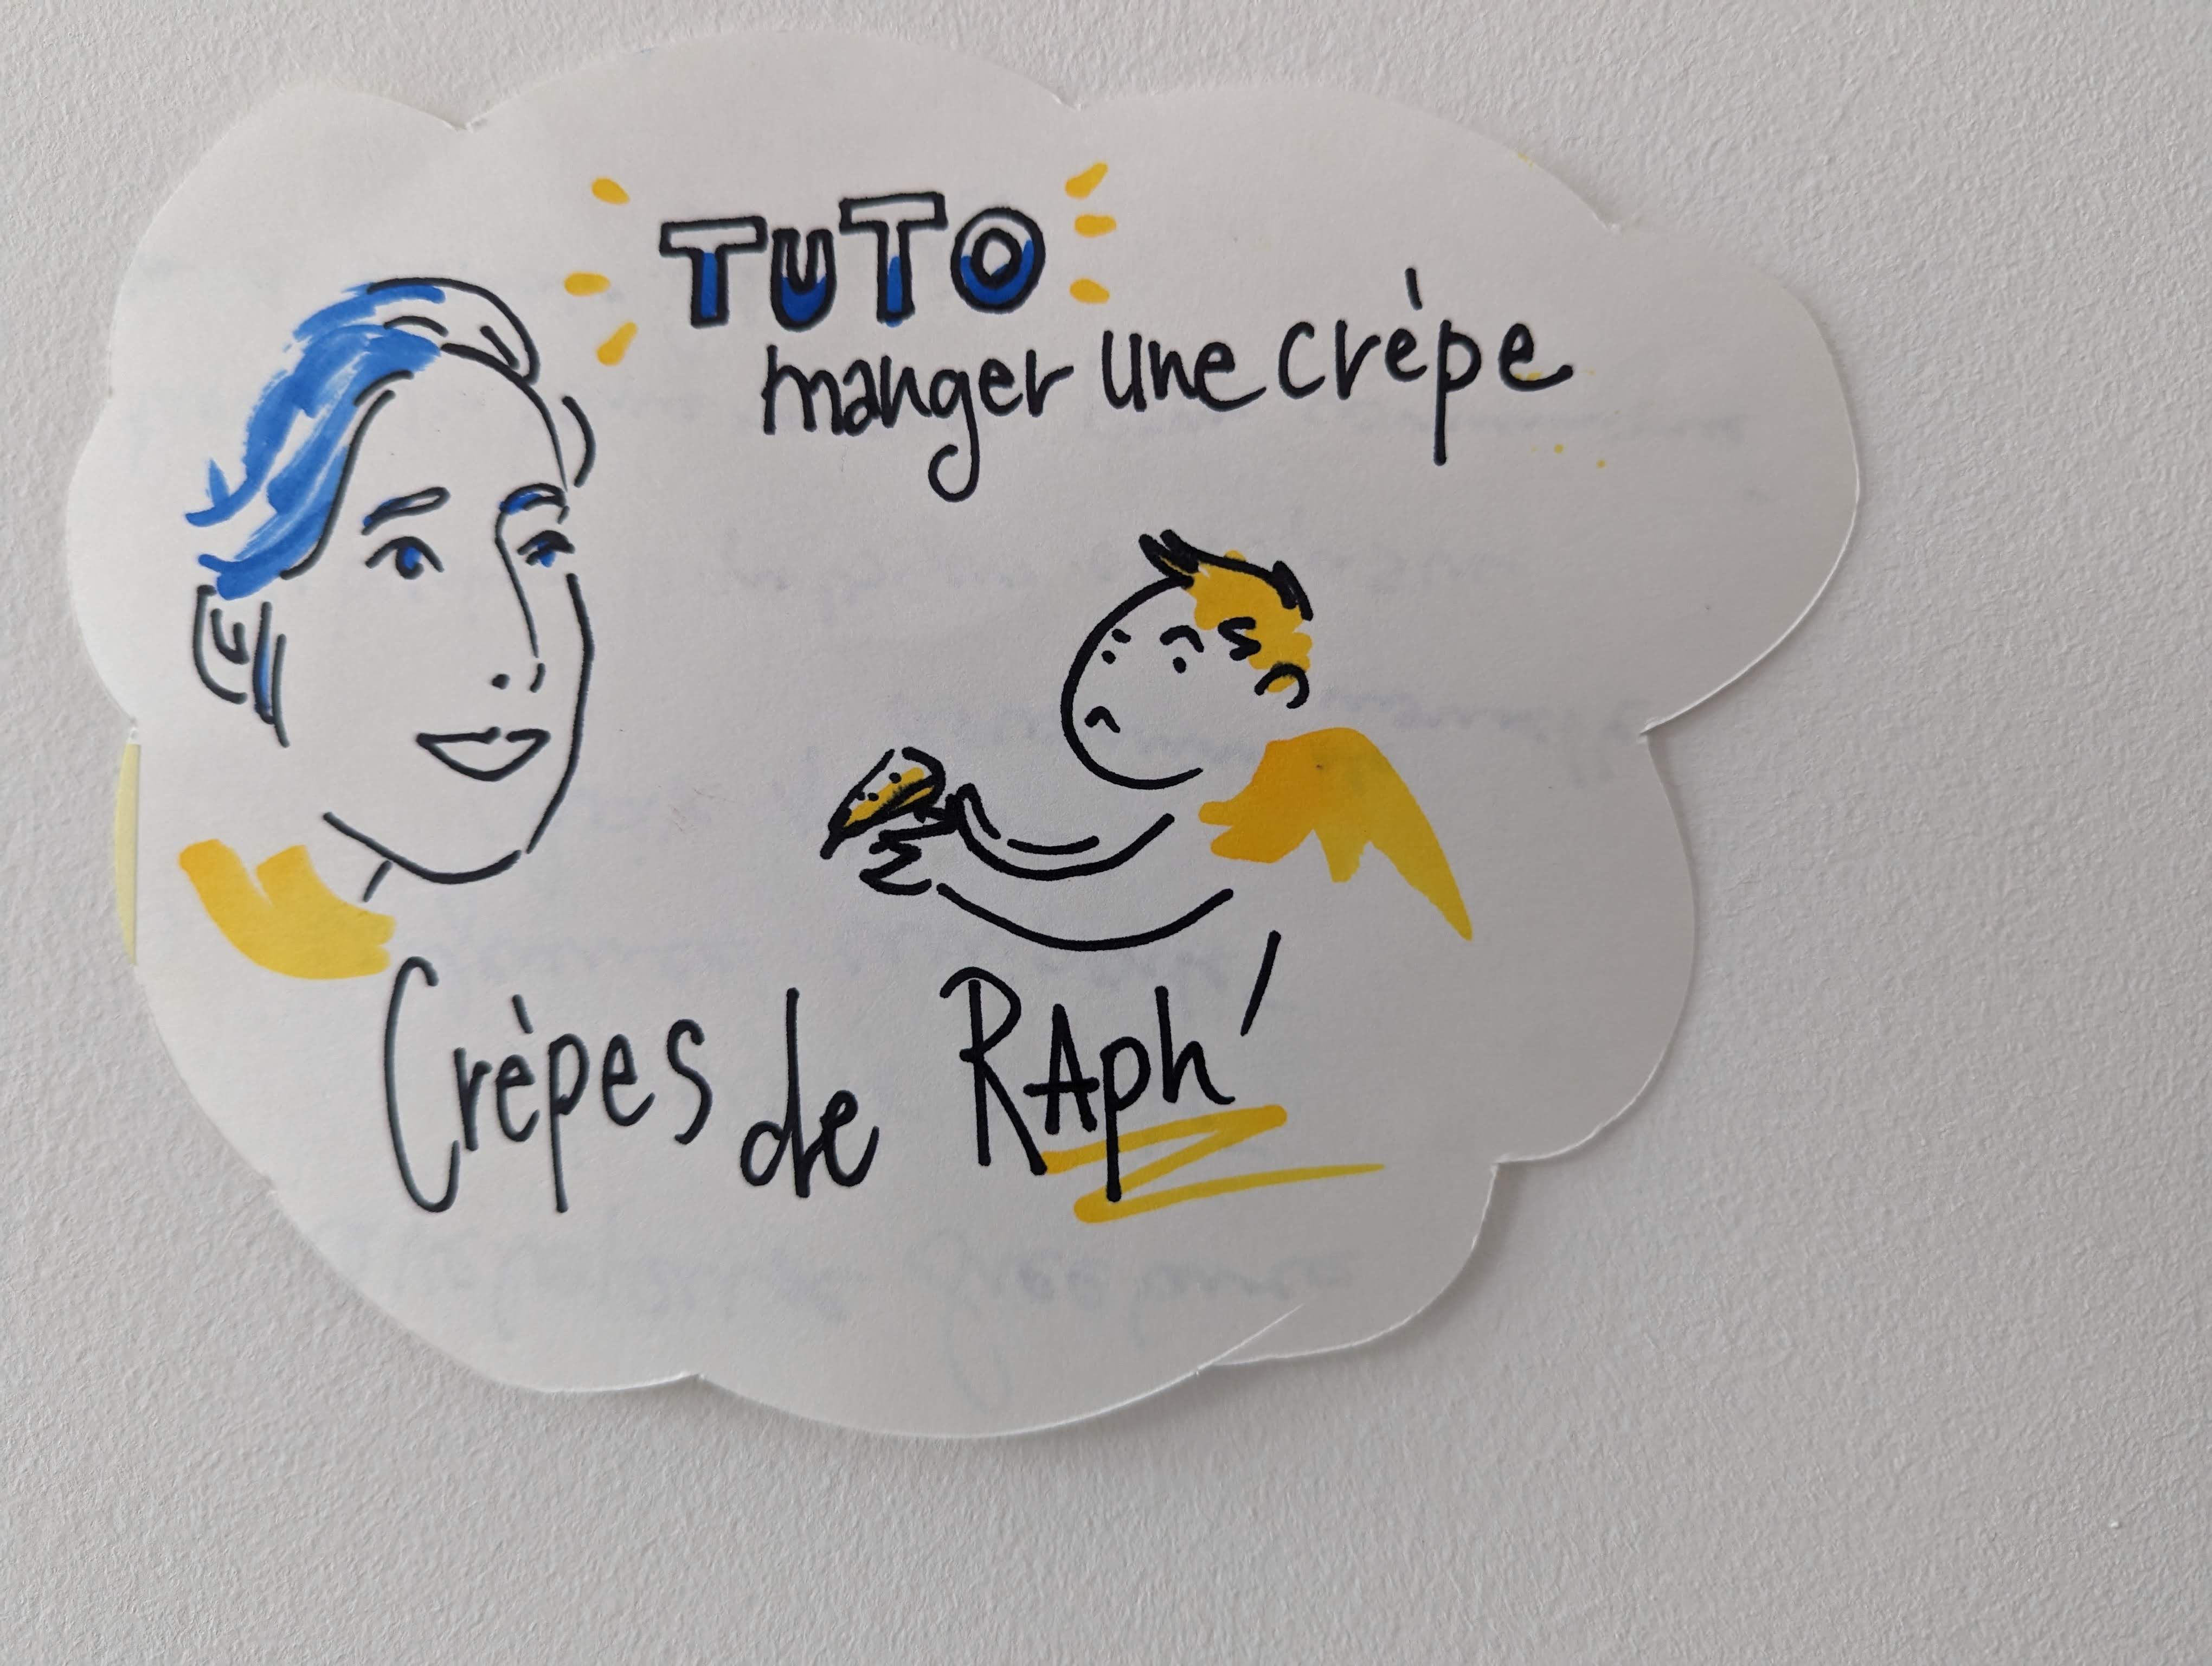 TUTO
manger une crèpe
Crèpes de RAph'